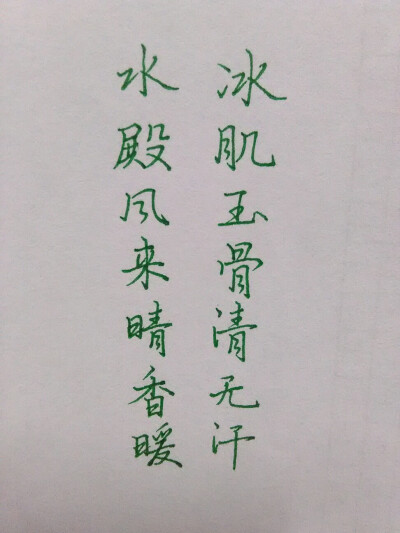 冰肌玉骨清无汗
水殿风来晴香暖